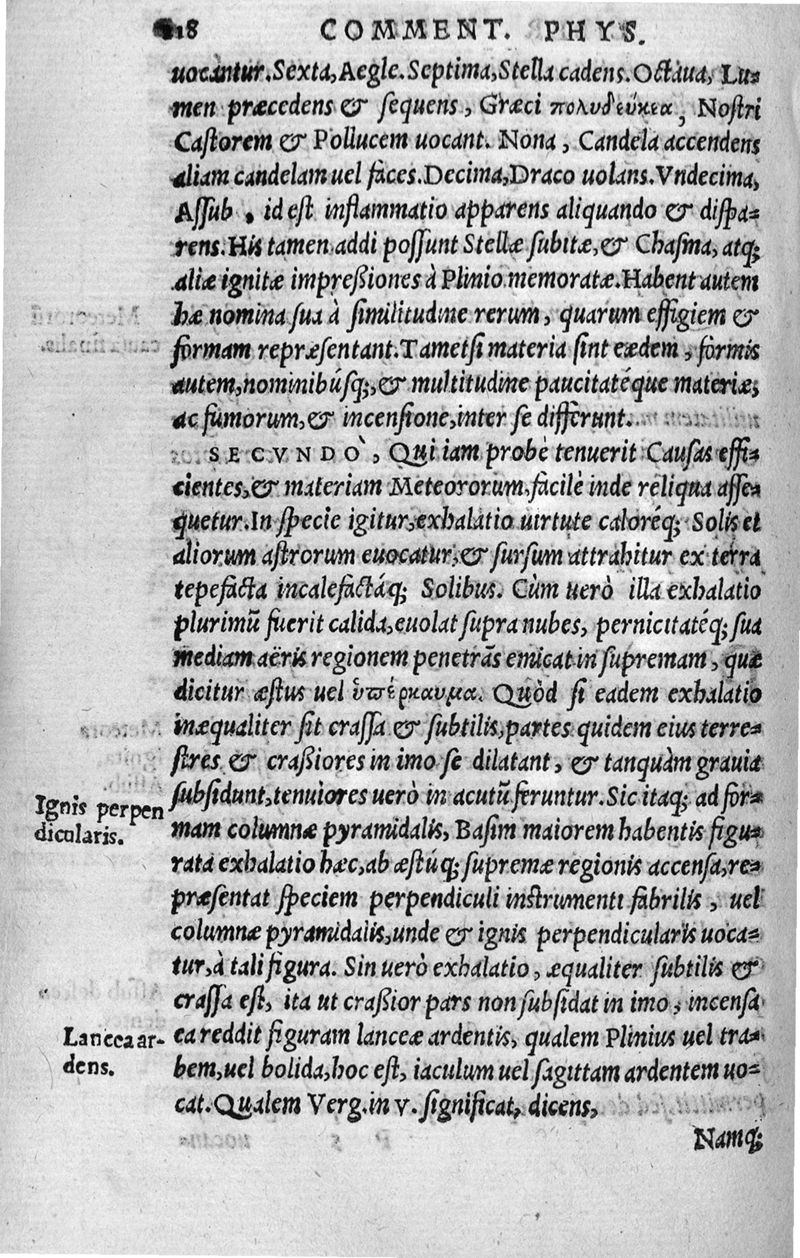 218 COMMENT. PHYS.
uocantur. Sexta, Aegle. Septima, Stella cadens. Octaua, Lu-
men præcedens & sequens, Græci πολυδεύκεα, Nostri
Castorem & Pollucem uocant. Nona, Candela accendens
aliam candelam uel faces. Decima, Draco uolans. Vndecima,
Assub, id est inflammatio apparens aliquando & dispa-
rens. His tamen addi possunt Stellæ subitæ, & Chasma, atq;
aliæ ignitæ impreßiones à Plinio memoratæ. Habent autem
hæ nomina sua à similitudine rerum, quarum effigiem &
formam repræsentant. Tametsi materia sint eædem, formis
autem, nominibúsq;, & multitudine paucitatéque materiæ,
ac fumorum, & incensione, inter se differunt.
SECVNDÒ, Qui iam probè tenuerit Causas effi-
cientes, & materiam Meteororum, facilè inde reliqua asse-
quetur. In specie igitur, exhalatio uirtute caloréq; Solis et
aliorum astrorum euocatur, & sursum attrahitur ex terra
tepefacta incalefactáq; Solibus. Cùm uerò illa exhalatio
plurimũ fuerit calida, euolat supra nubes, pernicitatéq; sua
mediam aëris regionem penetrãs emicat in supremam, quæ
dicitur æstus uel ὑπέρκαυμα. Quòd si eadem exhalatio
inæqualiter sit crassa & subtilis, partes quidem eius terre-
stres & craßiores in imo se dilatant, & tanquàm grauia
subsidunt, tenuiores uerò in acutũ feruntur. Sic itaq; ad for-
Ignis perpen
dicularis.
mam columnæ pyramidalis, Basim maiorem habentis figu-
rata exhalatio hæc, ab æstúq; supremæ regionis accensa, re-
præsentat speciem perpendiculi instrumenti fabrilis, uel
columnæ pyramidalis, unde & ignis perpendicularis uoca-
tur, à tali figura. Sin uerò exhalatio, æqualiter subtilis &
crassa est, ita ut craßior pars non subsidat in imo, incensa
Lancea ar-
dens.
ea reddit figuram lanceæ ardentis, qualem Plinius uel tra-
bem, uel bolida, hoc est, iaculum uel sagittam ardentem uo-
cat. Qualem Verg. in v. significat, dicens,
Namq;